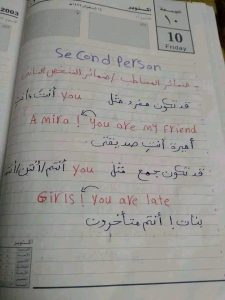 2003
أكتوبر
الجمعة
١٠
10
Friday
Second Person
ضمائر المخاطب / ضمائر الشخص الثاني
قد تكون مفرد مثل you أنتَ
Amira! You are my Friend
أميرة أنتِ صديقتي.
قد تكون جمع مثل you أنتم/أنتن/
Girls! You are late
بنات! أنتم متأخرون
أكتوبر